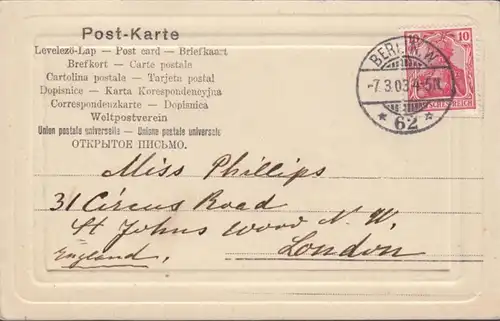 Post-Karte
Levelező-Lap — Post card — Briefkaart
Brefkort — Carte postale
Cartolina postale — Tarjeta postal
Dopisnice — Karta Korespondencyjna
Correspondenzkarte — Dopisnica
Weltpostverein
Union postale universelle — Unione postale universale
ОТКРЫТОЕ ПИСЬМО.
10
BERLIN.W
-7.3.03.4-5N.
* 62 *
Miss Phillips
31 Circus Road
St Johns wood N. W.
London
England,